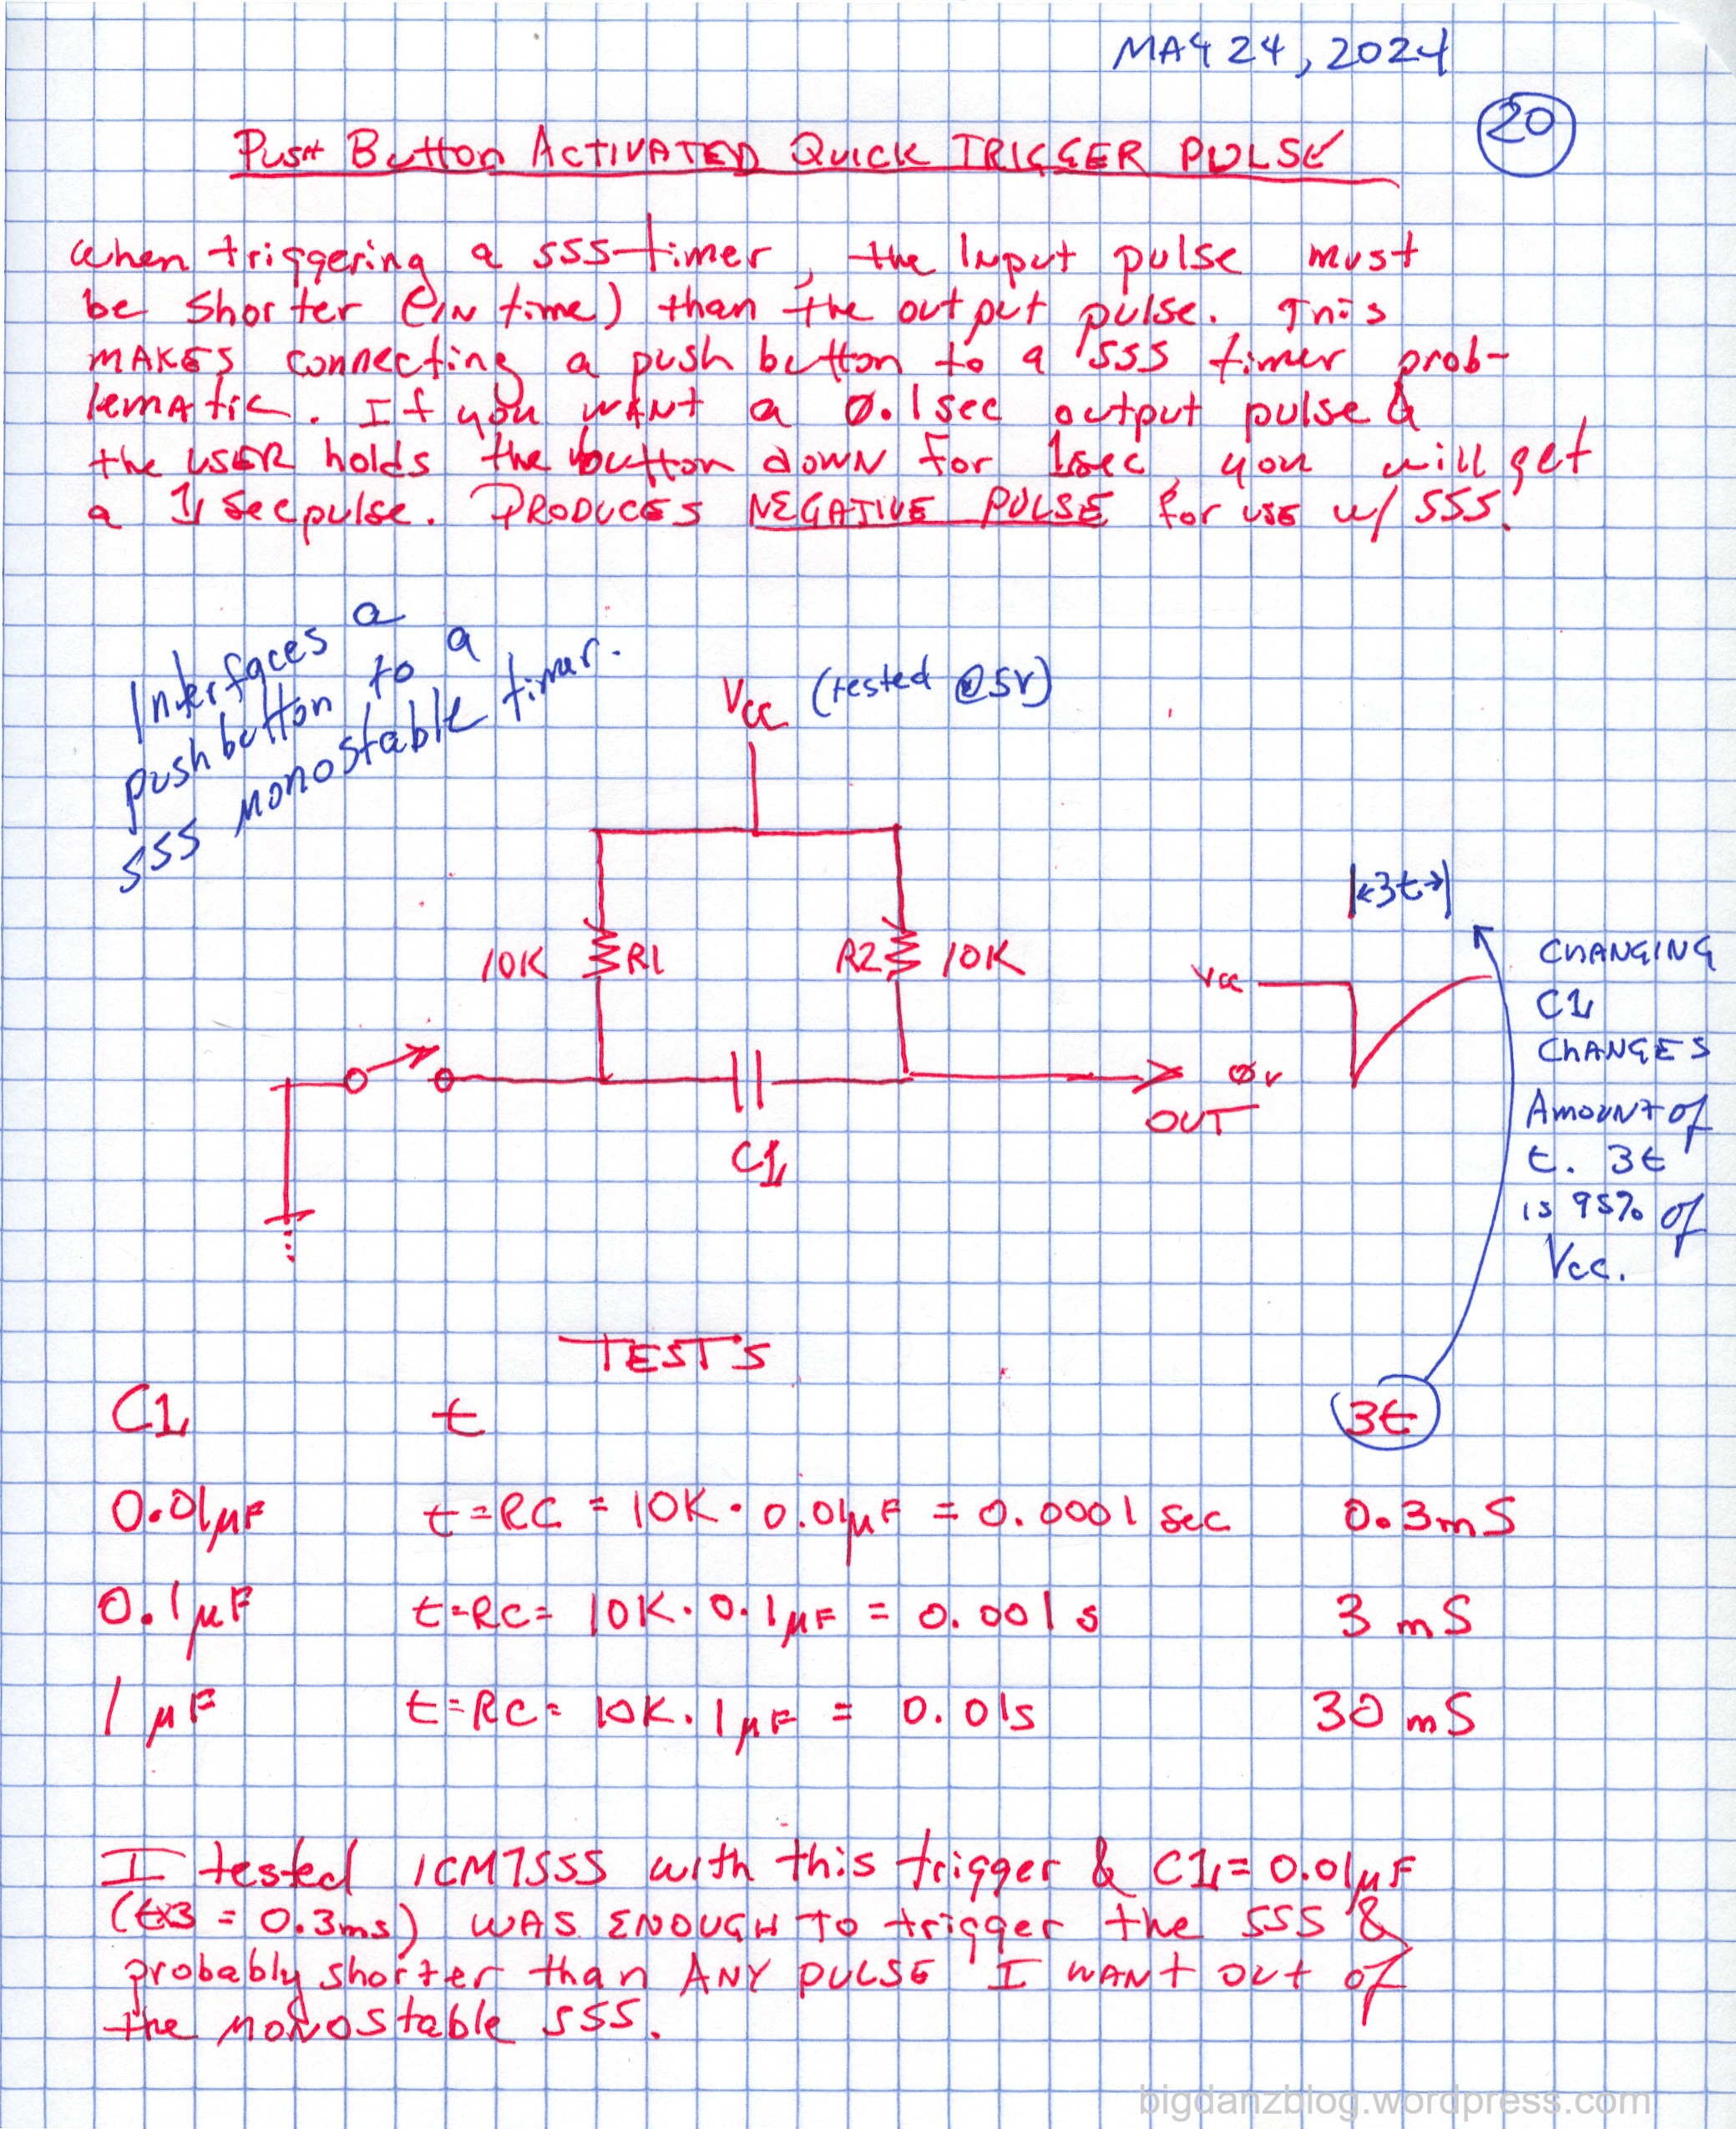 MAY 24, 2024
20
Push Button ACTIVATED QUICK TRIGGER PULSE
when triggering a 555 timer, the Input pulse must
be shorter (in time) than the output pulse. This
MAKES connecting a push button to a 555 timer prob-
lematic. If you WANT a 0.1sec output pulse &
the USER holds the button down for 1sec, you will get
a 1 sec pulse. PRODUCES NEGATIVE PULSE for use w/ 555.
Interfaces a
pushbutton to a
555 monostable timer.
Vcc (tested @5V)
10K R1
R2 10K
C1
OUT
Vcc
0v
3t
CHANGING
C1
CHANGES
Amount of
t. 3t
is 95% of
Vcc.
TESTS
C1 t 3t
0.01µF t=RC = 10K · 0.01µF = 0.0001 sec 0.3mS
0.1µF t=RC= 10K · 0.1µF = 0.001s 3 mS
1 µF t=RC= 10K · 1µF = 0.01s 30 mS
I tested ICM7555 with this trigger & C1=0.01µF
(tx3 = 0.3ms) WAS ENOUGH TO trigger the 555 &
probably shorter than ANY PULSE I WANT out of
the monostable 555.
bigdanzblog.wordpress.com